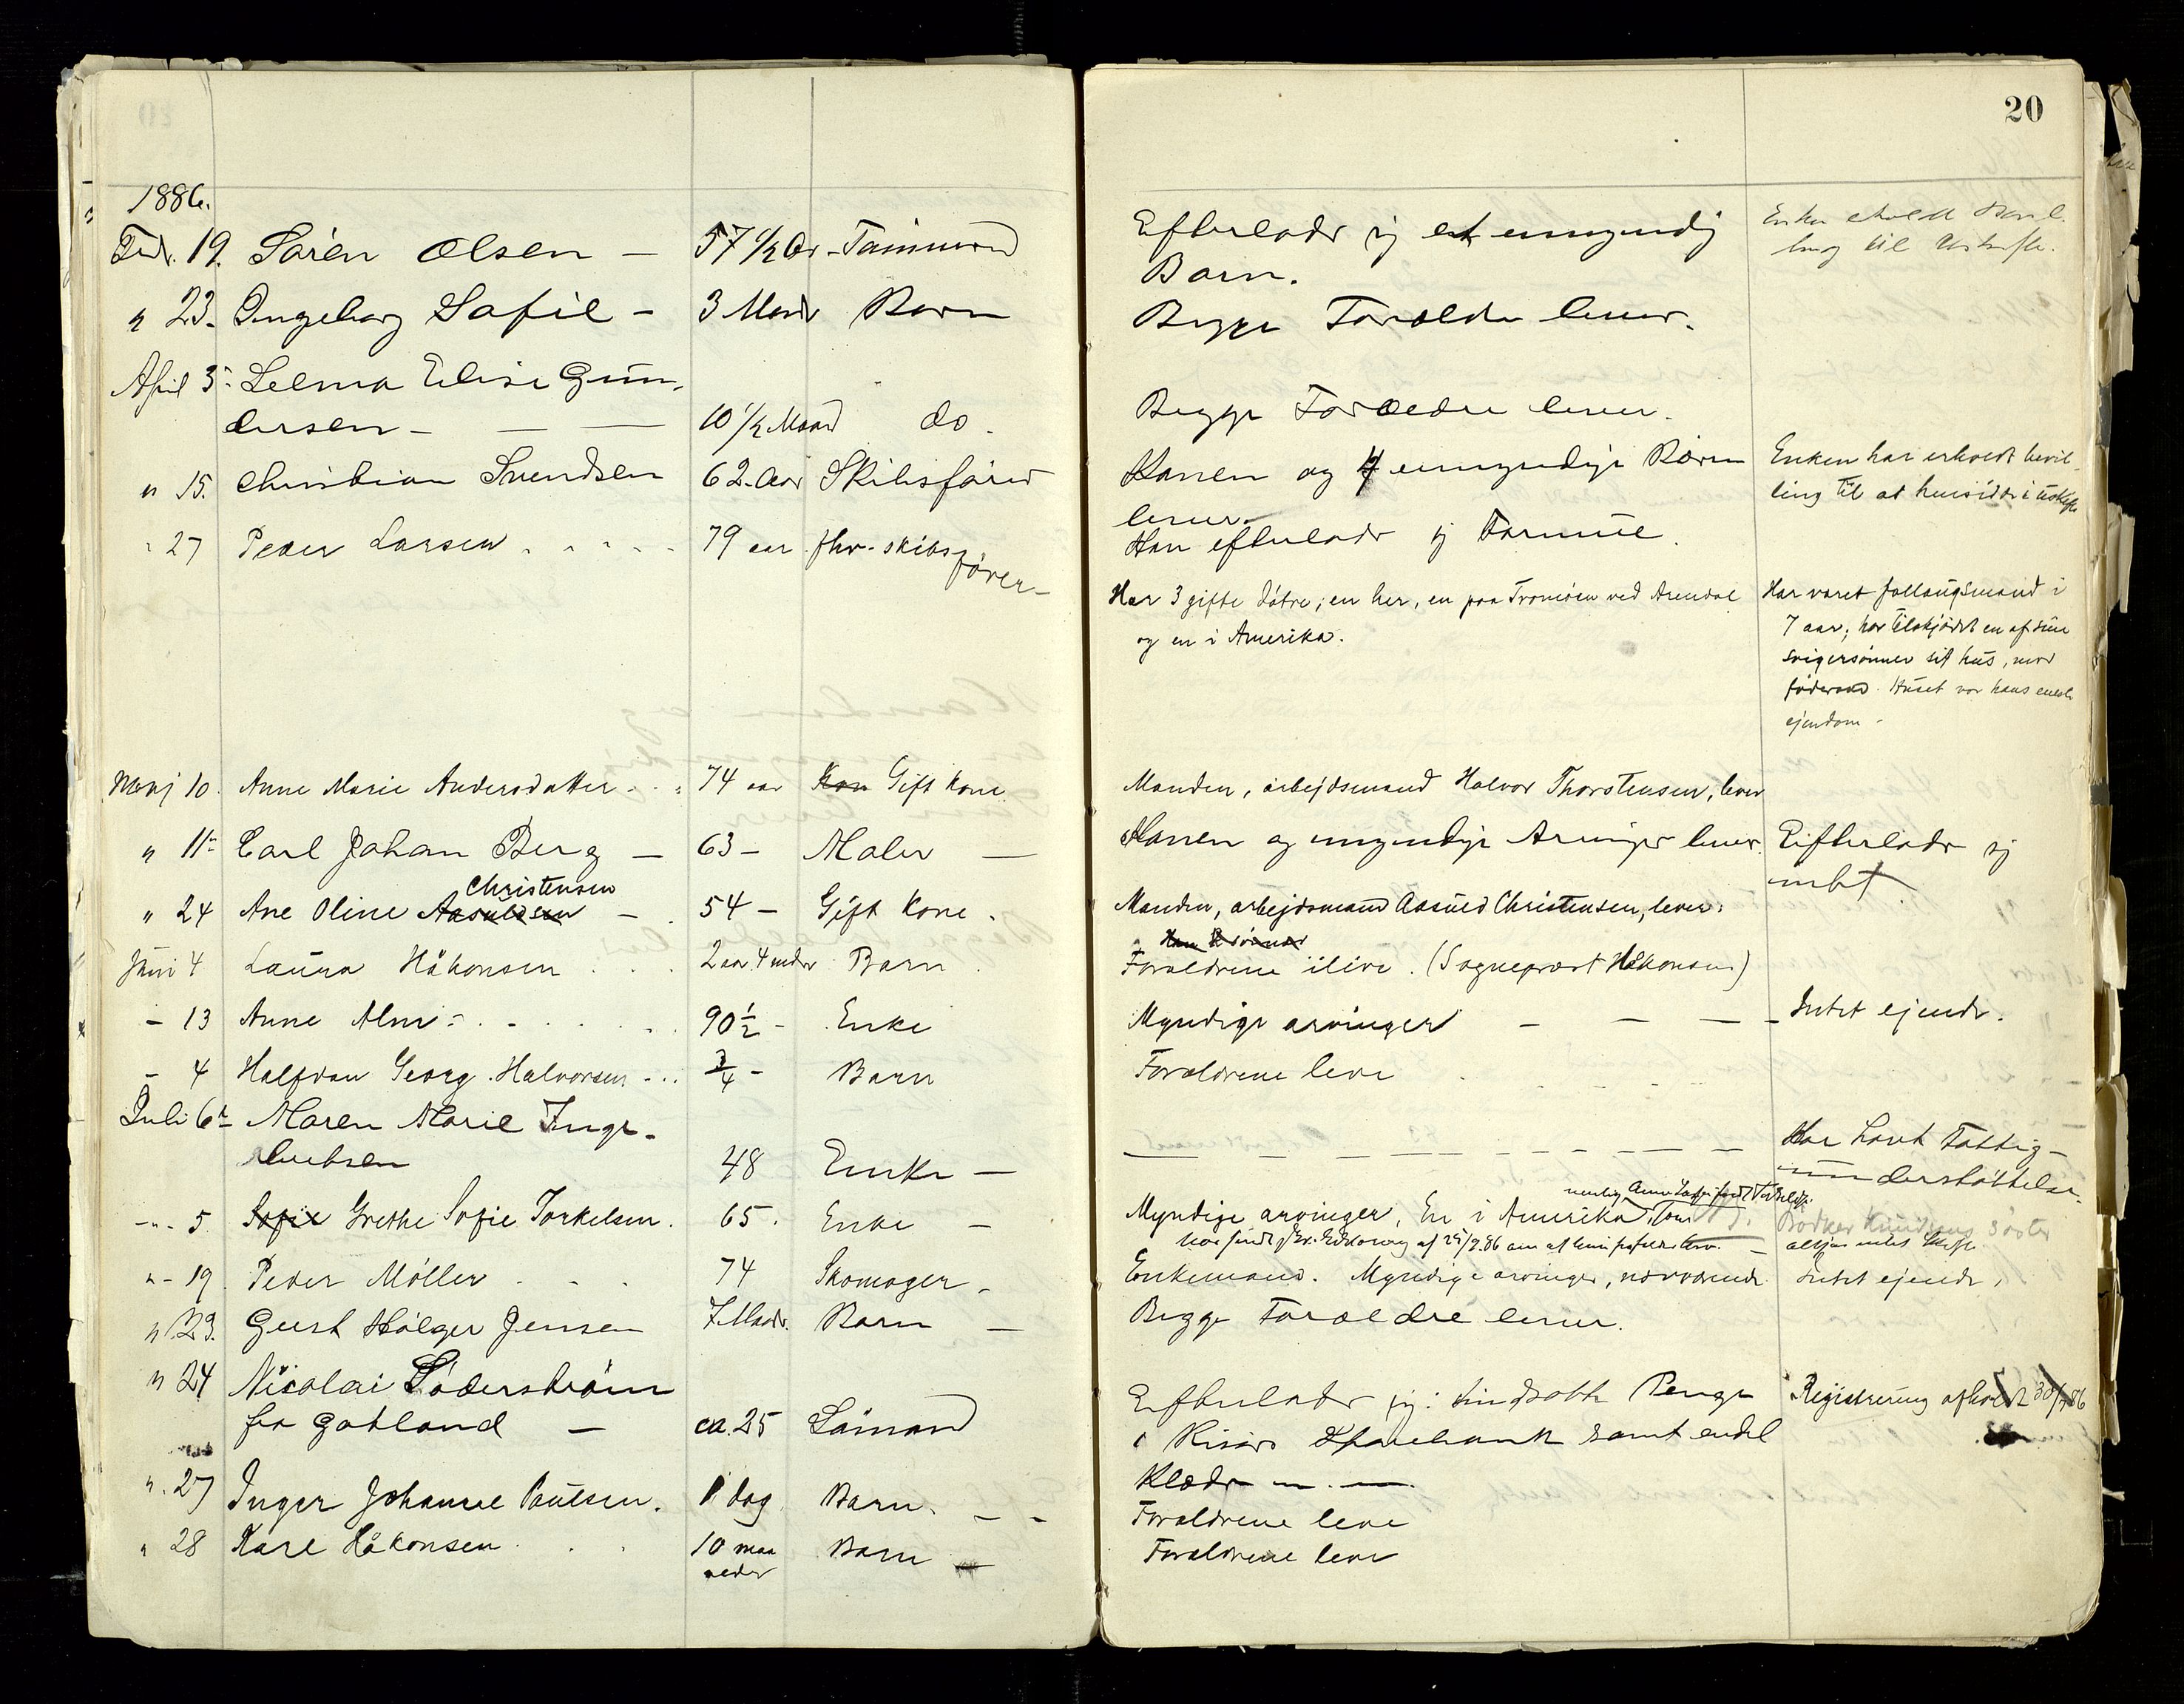 20
1886.
Feb. 19. Sören Olsen — 57 1/2 Aar - Tömmermand Efterlader sig et umyndig Enken erholdt Bevil-
Barn. ling til Uskifte.
" 23. Ingeborg Sofie — 3 Maan Barn Begge Forældre lever.
April 3. Selma Elise Gun-
dersen — — — 10 1/2 Maan do. Begge Forældre lever.
" 15. Christian Svendsen 62 Aar Skibsfører Konen og 4 umyndige Børn Enken har erholdt bevil-
lever. ling til at hensidde i uskifte
" 27 Peder Larsen . . . . 79 aar fhv. skibs-
fører —
Han efterlader sig Formue.
Har 3 gifte døtre; en her, en paa Tromöen ved Arendal Har været follaugsmand i
og en i Amerika. 7 aar; har tilskjødet en af sine
svigersønner sit hus, mod
föderaad. Huset var hans eneste
ejendom -
Maj 10. Anne Marie Andersdatter . . 74 aar Kon Gift Kone Manden, arbejdsmand Halvor Thorstensen, lever
" 11. Carl Johan Berg — 63 — Maler — Konen og umyndige Arvinger lever. Efterlader sig
intet
Christensen
" 24 Ane Oline Aasuldsen — . 54 — Gift Kone . Manden, arbejdsmand Aasuld Christensen, lever.
Juni 4 Laura Håkonsen . . . 2 aar 4 mdr Barn . Forældrene ilive. (Sogneprest Håkonsen)
— 13 Anne Alm . . . . . 90 1/2 — Enke Myndige arvinger — — — Intet ejende.
— 4 Halfdan Georg Halvorsen . . . 3/4 — Barn Forældrene leve
Juli 6 Maren Marie Inge-
bretsen 48 Enke — Har havt Fattig-
understöttelse.
— " 5. Sofie Grethe Sofie Torkelsen. 65. Enke — Myndige arvinger, En i Amerika, Bødker Knudsens søster
" — 19. Peder Møller . . . 74 Skomager — Enkemand. Myndige arvinger, nærværende Intet ejende,
" 23. Gust Holger Jensen 7 Maan. Barn — Begge Forældre lever.
" 24 Nicolai Söderström
fra Gotland — ca. 25 Sömand Efterlader sig: Indsatte Penge Registrering afholdt 30/7 86
i Risør Sparebank samt endel
Klæder
". 27 Inger Johanne Paulsen. 1 dag Barn. — — Forældrene leve
" 28 Karl Håkonsen . . . 10 maa
neder Barn — Forældrene leve